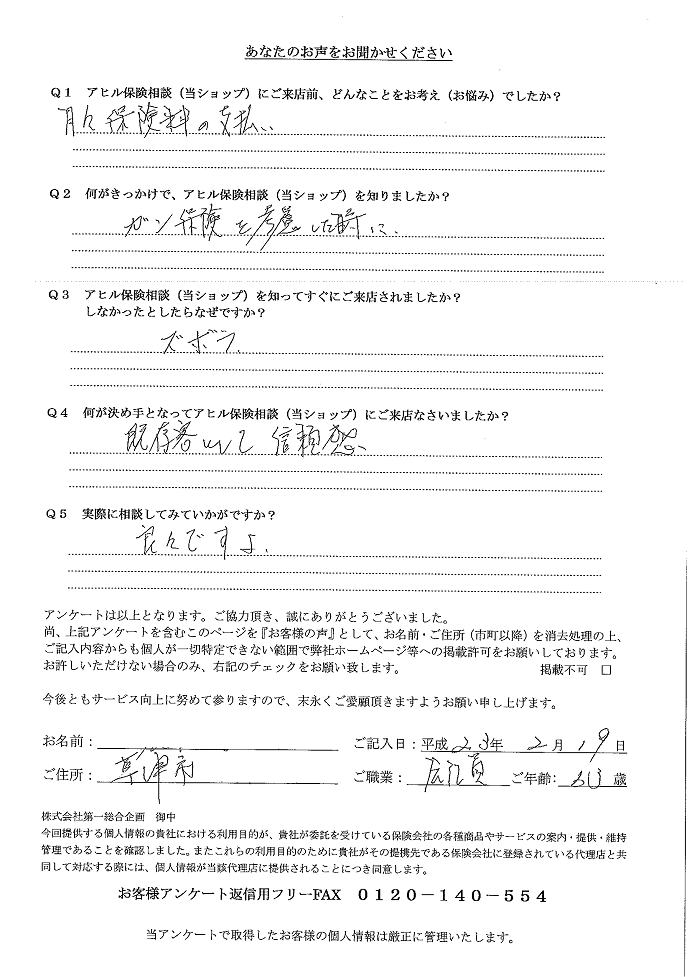 あなたのお声をお聞かせください
Q1 アヒル保険相談(当ショップ)にご来店前、どんなことをお考え(お悩み)でしたか?
月々保険料の支払い
Q2 何がきっかけで、アヒル保険相談(当ショップ)を知りましたか?
ガン保険を考慮した時に、
Q3 アヒル保険相談(当ショップ)を知ってすぐにご来店されましたか?
しなかったとしたらなぜですか?
ズボラ、
Q4 何が決め手となってアヒル保険相談(当ショップ)にご来店なさいましたか?
既存客 信頼感、
Q5 実際に相談してみていかがですか?
良んですよ、
アンケートは以上となります。ご協力頂き、誠にありがとうございました。
尚、上記アンケートを含むこのページを『お客様の声』として、お名前・ご住所(市町以降)を消去処理の上、
ご記入内容からも個人が一切特定できない範囲で弊社ホームページ等への掲載許可をお願いしております。
お許しいただけない場合のみ、右記のチェックをお願い致します。 掲載不可 □
今後ともサービス向上に努めて参りますので、末永くご愛顧頂きますようお願い申し上げます。
お名前: ご記入日:平成23年 2月 19日
ご住所:草津市 ご職業: ご年齢: 歳
株式会社第一総合企画 御中
今回提供する個人情報の貴社における利用目的が、貴社が委託を受けている保険会社の各種商品やサービスの案内・提供・維持
管理であることを確認しました。またこれらの利用目的のために貴社がその提携先である保険会社に登録されている代理店と共
同して対応する際には、個人情報が当該代理店に提供されることにつき同意します。
お客様アンケート返信用フリーFAX 0120-140-554
当アンケートで取得したお客様の個人情報は厳正に管理いたします。